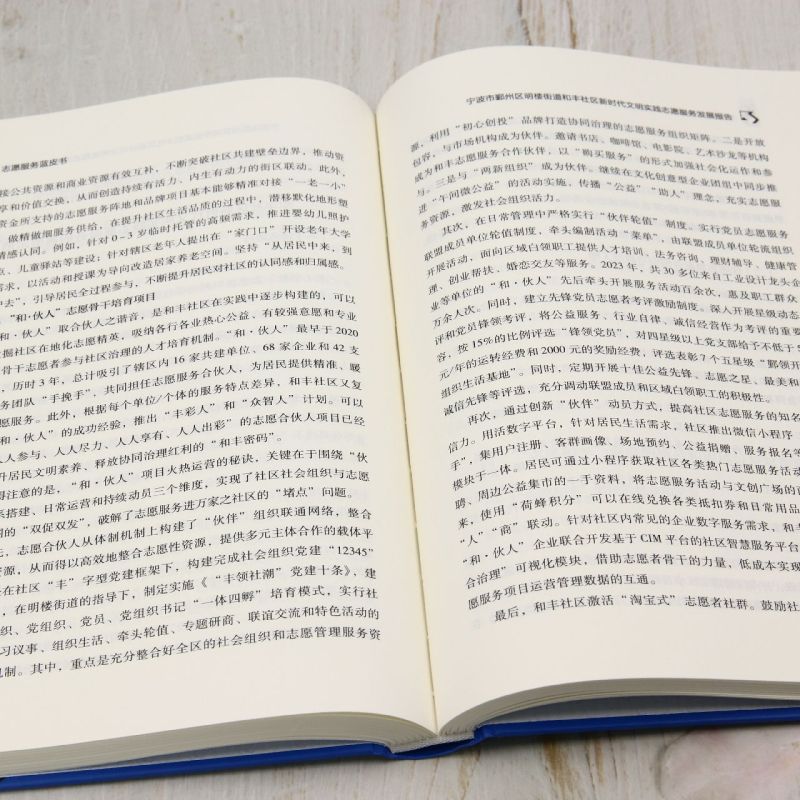 志愿服务蓝皮书
接公共资源和商业资源有效互补，不断突破社区共建壁垒边界，推动资
享和价值交换，从而创造持续有活力、内生有动力的街区联动。此外，
资金所支持的志愿服务阵地和品牌项目基本能够精准对接“一老一小”
做精做细服务供给，在提升社区生活品质的过程中，潜移默化地形塑
情感认同。例如，针对0-3岁临时托管的高频需求，推进婴幼儿照护
点、儿童驿站等建设；针对辖区老年人提出在“家门口”开设老年大学
求，以活动和授课为导向改造居家养老空间。坚持“从居民中来，到
中去”，引导居民全过程参与，不断提升居民对社区的认同感和归属感。
“和·伙人”志愿骨干培育项目
和·伙人”取合伙人之谐音，是和丰社区在实践中逐步构建的，可以
挖掘社区在地化志愿精英，吸纳各行各业热心公益、有较强意愿和专业
骨干志愿者参与社区治理的人才培育机制。“和·伙人”最早于2020
，历时3年，总计吸引了辖区内16家共建单位、68家企业和42支
务团队“手挽手”，共同担任志愿服务合伙人，为居民提供精准、暖
愿服务。此外，根据每个单位/个体的服务特点差异，和丰社区又复
和·伙人”的成功经验，推出“丰彩人”和“众智人”计划。可以
人人参与、人人尽力、人人享有、人人出彩”的志愿合伙人项目已经
升居民文明素养、释放协同治理红利的“和丰密码”。
得注意的是，“和·伙人”项目火热运营的秘诀，关键在于围绕“伙
系搭建、日常运营和持续动员三个维度，实现了社区社会组织与志愿
的“双促双发”，破解了志愿服务进万家之社区的“堵点”问题。
先，志愿合伙人从体制机制上构建了“伙伴”组织联通网络，整合
资源，从而得以高效地整合志愿性资源，提供多元主体合作的载体平
在社区“丰”字型党建框架下，构建完成社会组织党建“12345”
，在明楼街道的指导下，制定实施《“丰领社潮”党建十条》，建
织、党组织、党员、党组织书记“一体四孵”培育模式，实行社
习议事、组织生活、牵头轮值、专题研商、联谊交流和特色活动的
机制。其中，重点是充分整合好全区的社会组织和志愿管理服务资
宁波市鄞州区明楼街道和丰社区新时代文明实践志愿服务发展报告
源，利用“初心创投”品牌打造协同治理的志愿服务组织矩阵。二是开放
包容，与市场机构成为伙伴。邀请书店、咖啡馆、电影院、艺术沙龙等机构
成为和丰志愿服务合作伙伴，以“购买服务”的形式加强社会化运作和参
与。三是与“两新组织”成为伙伴。继续在文化创意型企业团组中同步推
进“午间微公益”的活动实施，传播“公益”“助人”理念，充实志愿服
务资源，激发社会组织活力。
其次，在日常管理中严格实行“伙伴轮值”制度。实行党员志愿服务
联盟成员单位轮值制度，牵头编制活动“菜单”，由联盟成员单位轮流组织
开展活动，面向区域白领职工提供人才培训、法务咨询、理财辅导、健康管
理、创业帮扶、婚恋交友等服务。2023年，共30多位来自工业设计龙头企
业等单位的“和·伙人”先后牵头开展服务活动百余次，惠及职工群众
万余人次。同时，建立先锋党员志愿者考评激励制度。深入开展星级动态
评和党员先锋考评，将公益服务、行业自律、诚信经营作为考评的重要
容，按15%的比例评选“锋领党员”，对四星级以上党支部给予不低于5
元/年的运转经费和2000元的奖励经费，评选表彰7个五星级“鄞领开
组织生活基地”。同时，定期开展十佳公益先锋、志愿之星、最美和
诚信先锋等评选，充分调动联盟成员和区域白领职工的积极性。
再次，通过创新“伙伴”动员方式，提高社区志愿服务的知名
信力。用活数字平台，针对居民生活需求，社区推出微信小程序“
手”，集用户注册、客群画像、场地预约、公益捐赠、服务报名等
模块于一体。居民可通过小程序获取社区各类热门志愿服务活动
聘、周边公益集市的一手资料，将志愿服务活动与文创广场的商
来，使用“荷蜂积分”可以在线兑换各类抵扣券和日常用品
“人”“商”联动。针对社区内常见的企业数字服务需求，和丰
“和·伙人”企业联合开发基于CIM平台的社区智慧服务平台
合治理”可视化模块，借助志愿者骨干的力量，低成本实现
愿服务项目运营管理数据的互通。
最后，和丰社区激活“淘宝式”志愿者社群。鼓励社